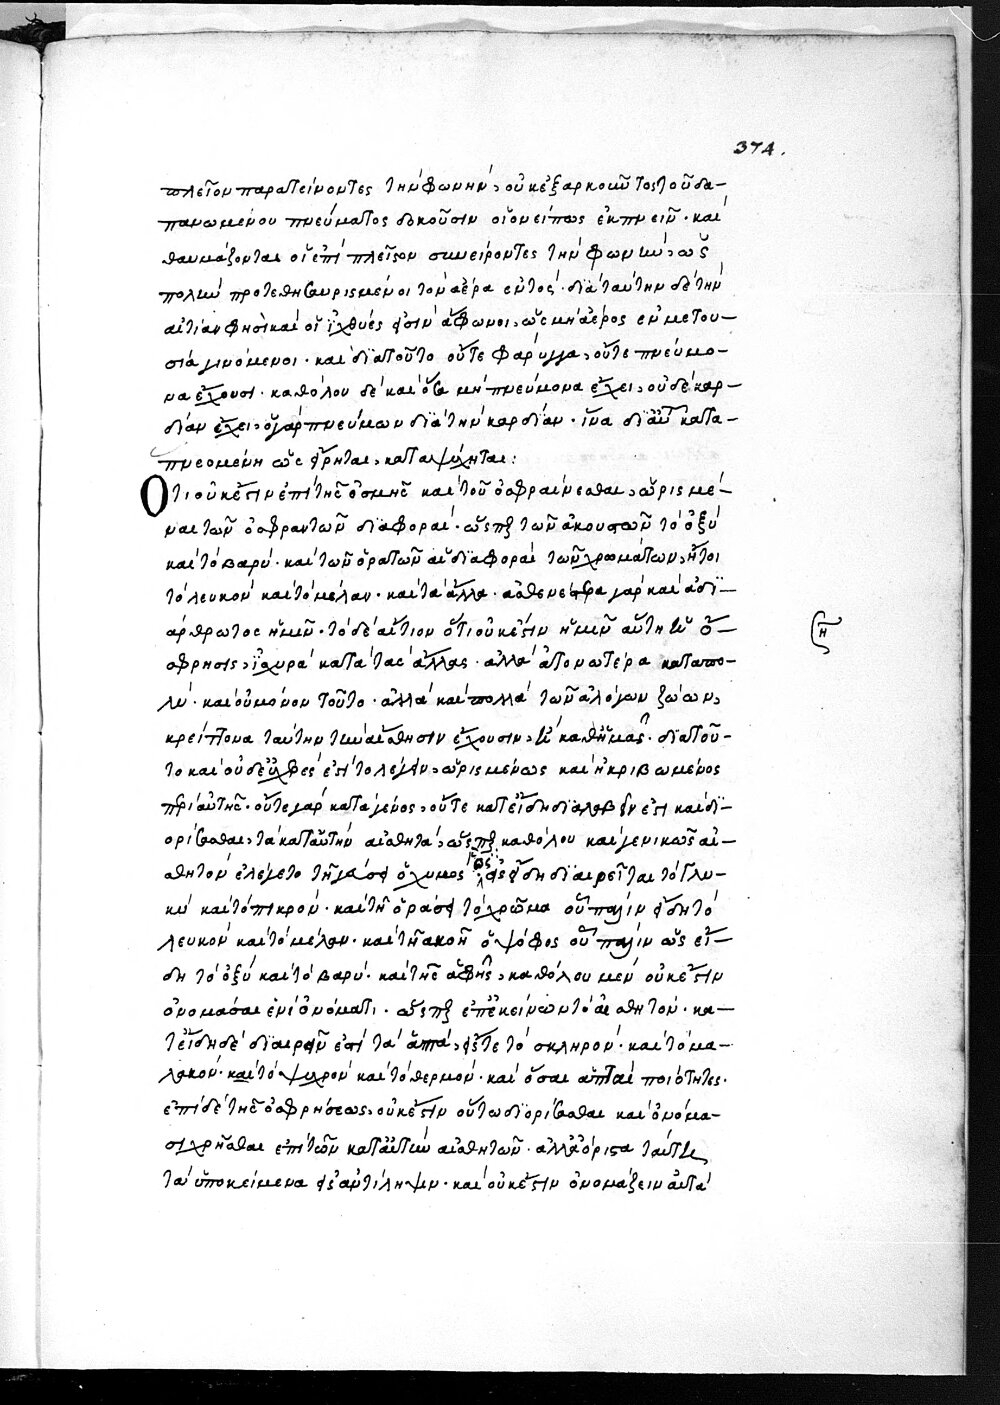 374.
πλεῖον παρατείνοντες τὴν φωνὴν, οὐκ ἐξαρκοῦντος τοῦ δα-
πανωμένου πνεύματος δοκοῦσιν οἱονεί πως ἐκπνεῖν. καὶ
θαυμάζονται οἱ ἐπὶ πλεῖστον συνείροντες τὴν φωνὴν, ὡς
πολὺν προτεθησαυρισμένοι τὸν ἀέρα ἐντός. διὰ ταύτην δὲ τὴν
αἰτίαν φησὶ καὶ οἱ ἰχθύες εἰσὶν ἄφωνοι, ὡς μὴ ἀέρος ἐν μετου-
σίᾳ γινόμενοι. καὶ διατοῦτο οὔτε φάρυγγα, οὔτε πνεύμο-
να ἔχουσι. καθόλου δὲ καὶ ὅσα μὴ πνεύμονα ἔχει, οὐδὲ καρ-
δίαν ἔχει, ὁ γὰρ πνεύμων διὰ τὴν καρδίαν. ἵνα δι' αὐτοῦ κατα-
πνεομένη ὡς εἴρηται, καταψύχηται:
Ὅτι οὐκ ἔστιν ἐπὶ τῆς ὀσμῆς καὶ τοῦ ὀσφραίνεσθαι, ὡρισμέ-
ναι τῶν ὀσφραντῶν διαφοραί. ὥσπερ τῶν ἀκουστῶν τὸ ὀξὺ
καὶ τὸ βαρύ. καὶ τῶν ὁρατῶν αἱ διαφοραὶ τῶν χρωμάτων, ἤτοι
τὸ λευκὸν καὶ τὸ μέλαν. καὶ τὰ ἄλλα. ἀσθενεστέρα γὰρ καὶ ἀδι-
άρθρωτος ἡμῖν. τὸ δὲ αἴτιον ὅτι οὐκ ἔστιν ἡμῖν αὕτη ἡ ὄ-
σφρησις, ἰσχυρὰ κατὰ τὰς ἄλλας. ἀλλὰ ἀτονωτέρα καταπο-
λύ. καὶ οὐ μόνον τοῦτο. ἀλλὰ καὶ πολλὰ τῶν ἀλόγων ζώων,
κρείττονα ταύτην τὴν αἴσθησιν ἔχουσιν, ἢ καθ' ἡμᾶς. διατοῦ-
το καὶ οὐδὲ εὐχερές ἐστι τὸ λέγειν, ὡρισμένως καὶ ἠκριβωμένως
περὶ αὐτῆς. οὔτε γὰρ κατὰ γένος, οὔτε κατ' εἴδη διαλαβεῖν ἔστι καὶ δι-
ορίσασθαι, τὰ κατ' αὐτὴν αἰσθητά, ὥσπερ καθόλου καὶ γενικῶς αἰ-
σθητὸν ἐλέγετο τῇ γεύσει ὁ χυμὸς ὃς εἰς εἴδη διαιρεῖται τὸ γλυ-
κὺ καὶ τὸ πικρόν. καὶ τῇ ὁράσει τὸ χρῶμα οὗ πάλιν εἴδη τὸ
λευκὸν καὶ τὸ μέλαν. καὶ τῇ ἀκοῇ ὁ ψόφος οὗ πάλιν ὡς εἴ-
δη τὸ ὀξὺ καὶ τὸ βαρύ. καὶ τῆς ἁφῆς, καθόλου μὲν οὐκ ἔστιν
ὀνομάσαι ἑνὶ ὀνόματι. ὥσπερ ἐπ' ἐκείνων τὸ αἰσθητόν. κα-
τ' εἴδη δὲ διαιρεῖν ἐστὶ τὰ ἁπτά, εἴς τε τὸ σκληρόν. καὶ τὸ μα-
λακόν. καὶ τὸ ψυχρὸν καὶ τὸ θερμόν. καὶ ὅσαι ἁπταὶ ποιότητες.
ἐπὶ δὲ τῆς ὀσφρήσεως, οὐκ ἔστιν οὕτω διορίσασθαι καὶ ὀνόμα-
σι χρῆσθαι ἐπὶ τῶν κατ' αὐτὴν αἰσθητῶν. ἀλλ' ἀόριστα ταύτῃ
τὰ ὑποκείμενα εἰς ἀντίληψιν. καὶ οὐκ ἔστιν ὀνομάζειν αὐτὰ